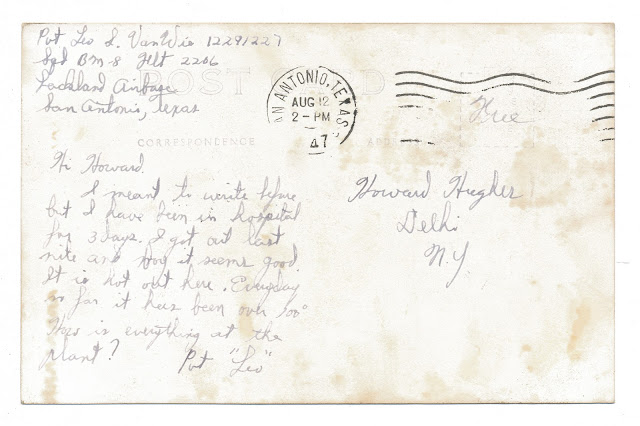 Pvt Leo S. VanWie 12291227
Sqd BM-8 Flt 2206
Lackland Airbase
San Antonio, Texas
POST CARD
SAN ANTONIO, TEXAS
AUG 12
2-PM
47
Free
CORRESPONDENCE
ADD
Hi Howard.
I meant to write before
but I have been in hospital
for 3 days. I got out last
nite and boy it seems good.
It is hot out here. Everyday
so far it has been over 100°
How is everything at the
plant?
Pvt "Leo"
Howard Hughes
Delhi
N.Y.